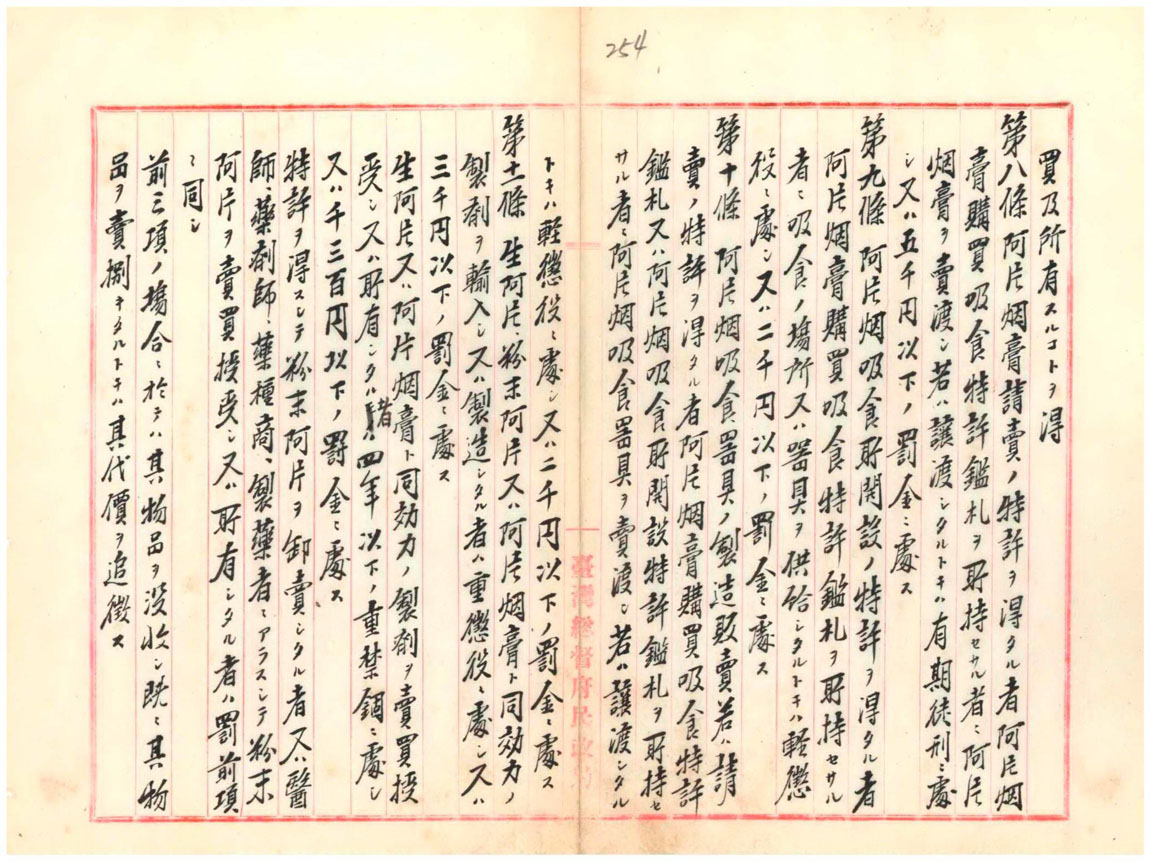 254
買及所有スルコトヲ得
第八條阿片烟膏請賣ノ特許ヲ得タル者阿片烟
膏購買吸食特許鑑札ヲ所持セサル者ニ阿片
烟膏ヲ賣渡シ若ハ讓渡シタルトキハ有期徒刑ニ處
シ又ハ五千円以下ノ罰金ニ處ス
第九條 阿片烟吸食所開設ノ特許ヲ得タル者
阿片烟膏購買吸ノ食特許鑑札ヲ所持セサル
者ニ吸食ノ場所又ハ器具ヲ供給シタルトキハ輕懲
役ニ處シ又ハ二千円以下ノ罰金ニ處ス
第十條 阿片烟吸食器具ノ製造販賣若ハ請
賣ノ特許ヲ得タル者阿片烟膏購買吸食特許
鑑札又ハ阿片烟吸食所開設特許鑑札ヲ所持セ
サル者ニ阿片烟吸食器具ヲ賣渡シ若ハ讓渡シタル
臺灣總督府民政局
トキハ輕懲役ニ處シ又ハ二千円以下ノ罰金ニ處ス
第十一條 生阿片、粉末阿片又ハ阿片烟膏ト同効力ノ
製剤ヲ輸入シ又ハ製造シタル者ハ重懲役ニ處シ又ハ
三千円以下ノ罰金ニ處ス
生阿片又ハ阿片烟膏ト同効力ノ製剤ヲ賣買授
受シ又ハ所有シタル者ハ四年以下ノ重禁錮ニ處シ
又ハ千三百円以下ノ罰金ニ處ス
特許ヲ得スシテ粉末阿片ヲ卸賣シタル者又ハ醫
師、藥剤師、藥種商、製藥者ニアラスシテ粉末
阿片ヲ賣買授受シ又ハ所有シタル者ハ罰前項
ニ同シ
前三項ノ場合ニ於テハ其物品ヲ沒收シ既ニ其物
品ヲ賣捌キタルトキハ其代價ヲ追徴ス